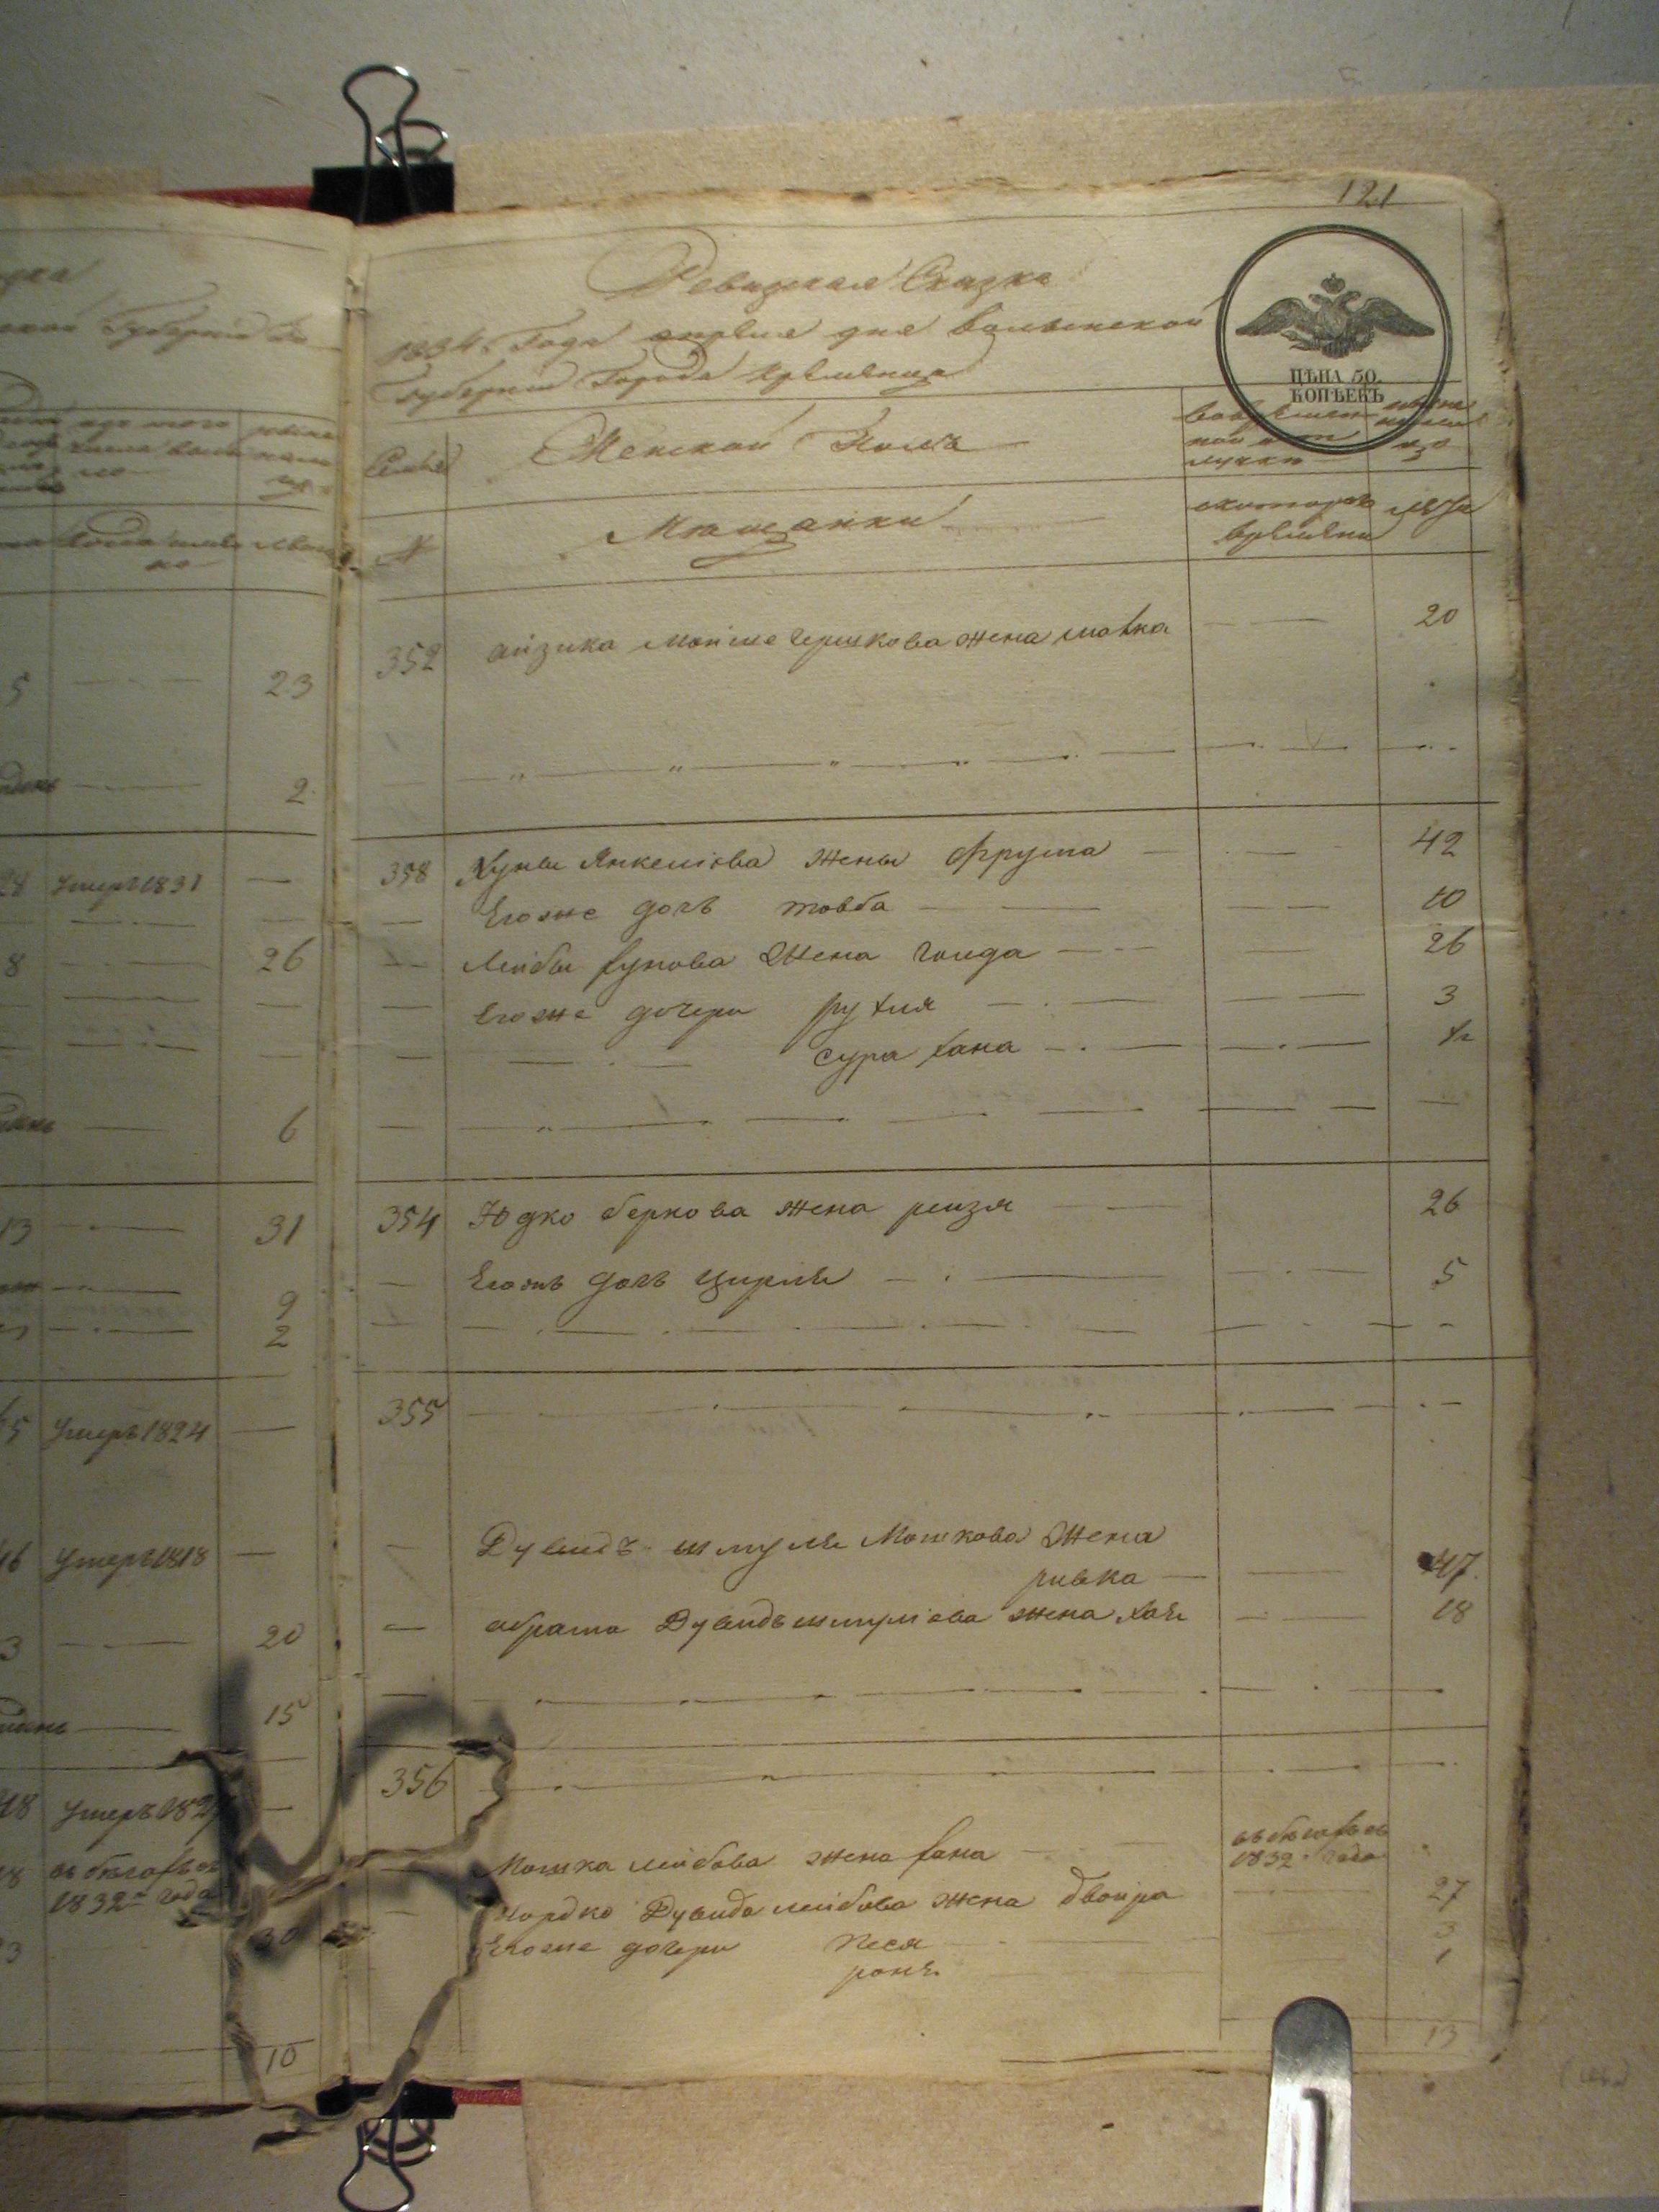 121
Ревизская Сказка
1834. Года апреля дня Волынской
Губернии Города Кременца
ЦѢНА 50.
КОПѢЕКЪ
Семьи
Женской Полъ
№
Мещанки
с котораго
времени
лета
352 Айзика Мойше Гершкова жена шовка 20
353 Хуны Янкелiова жены Фрума 42
Егоже дочь товба 10
Лейбы хунова Жена голда 26
Егоже дочери рухля 3
сура хана ½
354 Юдко беркова жена рейзя 26
Егожъ дочь Цирля 5
355
Дувидъ шмуля Мошкова Жена
ривка 47
абрама Дувидъ шмулiова жена хая 18
356
Мошка лейбова жена хана въ бегахъ съ
1832 года
Дувида лейбова жена двойра 27
Егоже дочери песя 3
роня 1
13
5 23
2
28 Умеръ 1831
8 26
6
13 31
9
2
Умеръ 1824
16 Умеръ 1818
3 20
15
48 Умеръ
въ бегахъ съ
1832 года
30
10